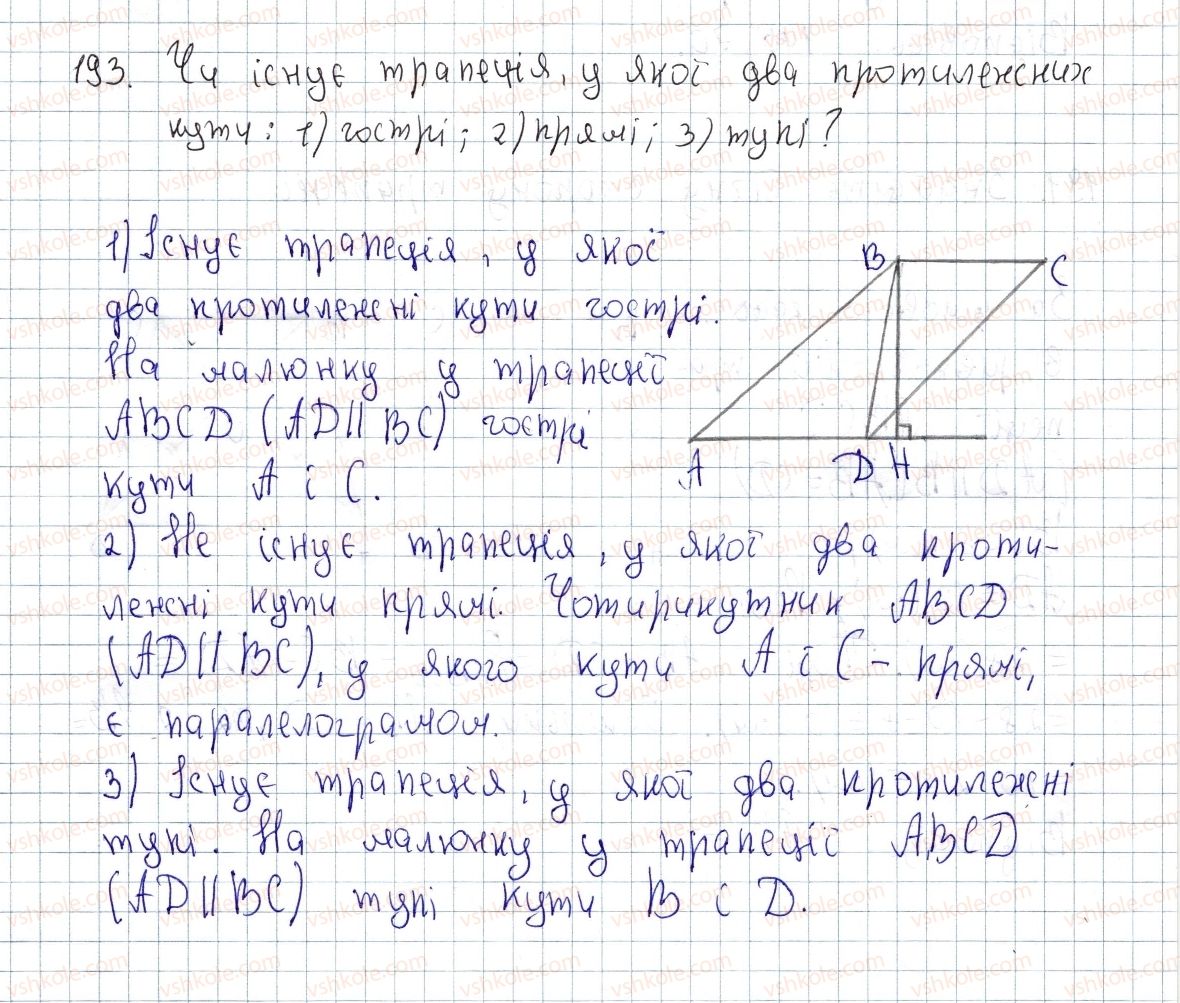 193. Чи існує трапеція, у якої два протилежних
кути: 1) гострі; 2) прямі; 3) тупі?
1) Існує трапеція, у якої
два протилежні кути гострі.
На малюнку у трапеції
ABCD (AD || BC) гострі
кути A і C.
B
C
A
D
H
2) Не існує трапеція, у якої два проти-
лежні кути прямі. Чотирикутник ABCD
(AD || BC), у якого кути A і C - прямі,
є паралелограмом.
3) Існує трапеція, у якої два протилежні
тупі. На малюнку у трапеції ABCD
(AD || BC) тупі кути B і D.
vshkole.com